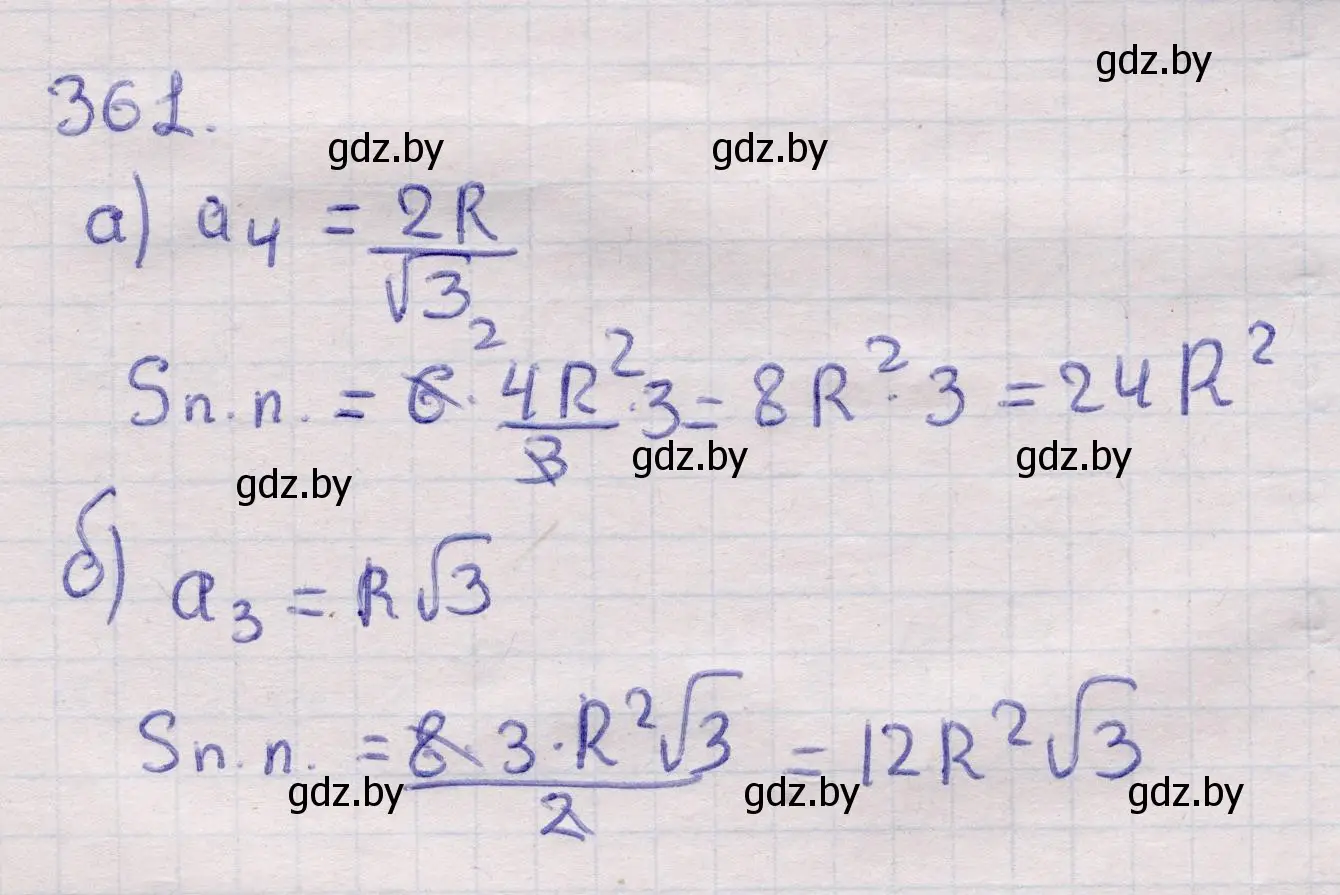 gdz.by
361.
gdz.by gdz.by
а) a₄ = 2R/√3
Sп.п. = 6² · 4R²/3 · 3 = 8R² · 3 = 24R²
gdz.by gdz.by gdz.by
б) a₃ = R√3
Sп.п. = 8 · 3 · R²√3/2 = 12R²√3
gdz.by gdz.by gdz.by